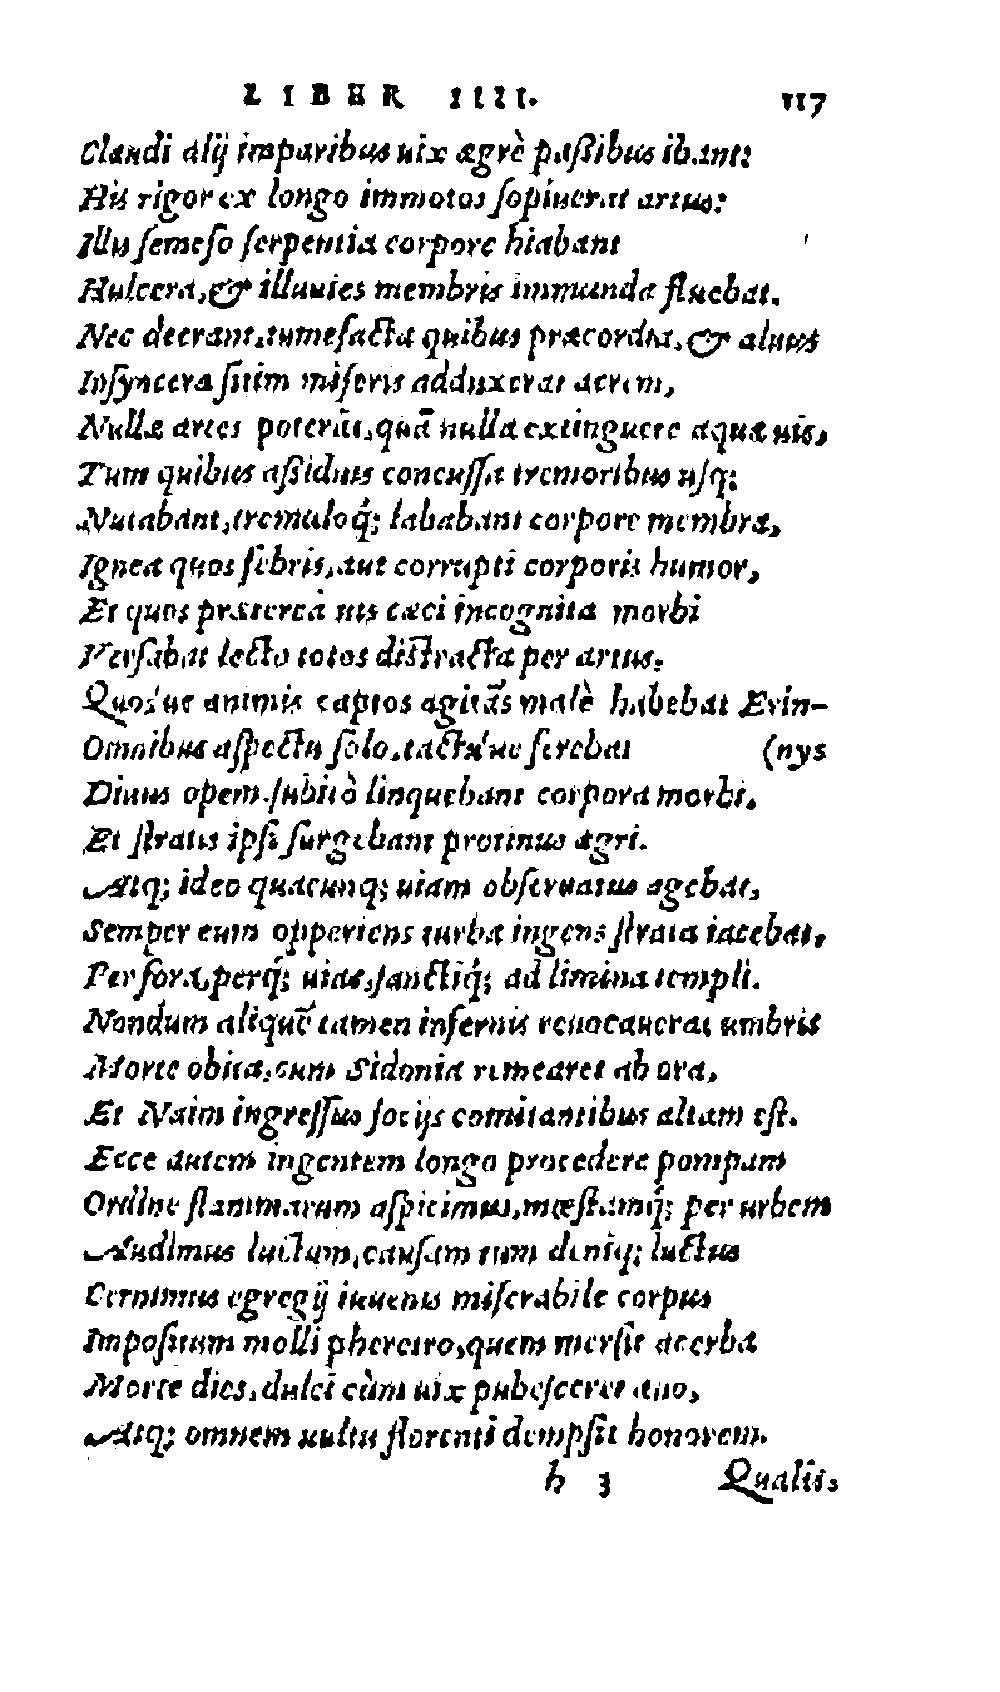 LIBER IIII. 117
Claudi alij imparibus uix ægrè paßibus ibant:
His rigor ex longo immotos ſopiuerat artus:
Illis ſemeſo ſerpentia corpore hiabant
Hulcera, & illuuies membris immunda fluebat.
Nec deerant, tumefacta quibus præcordia, & aluus
Inſyncera ſitim miſeris adduxerat acrem,
Nullæ artes poterāt, quā nulla extinguere aquæ uis,
Tum quibus aßiduis concuſſa tremoribus uſq;
Nutabant, tremuloq́; lababant corpore membra,
Ignea quos febris, aut corrupti corporis humor,
Et quos præterea uis cæci incognita morbi
Verſabat lecto totos diſtracta per artus.
Quos'ue animis captos agitās malè habebat Erin-
Omnibus aſpectu ſolo, tactu'ue ferebat (nys
Diuus opem, ſubitò linquebant corpora morbi,
Et ſtratis ipſi ſurgebant protinus ægri.
Atq; ideo quacunq; uiam obſeruatus agebat,
Semper eum opperiens turba ingens ſtrata iacebat,
Per fora, perq́; uias, ſanctiq́; ad limina templi.
Nondum aliquē tamen infernis reuocauerat umbris
Morte obita, cum Sidonia remearet ab ora,
Et Naim ingreſſus ſocijs comitantibus altam eſt.
Ecce autem ingentem longo procedere pompam
Ordine flammarum aſpicimus, mœſtamq́; per urbem
Audimus luctum, cauſam tum deniq; luctus
Cernimus egregij iuuenis miſerabile corpus
Impoſitum molli pheretro, quem merſit acerba
Morte dies, dulci cùm uix pubeſceret æuo,
Atq; omnem uultu florenti dempſit honorem.
h 3 Qualis,